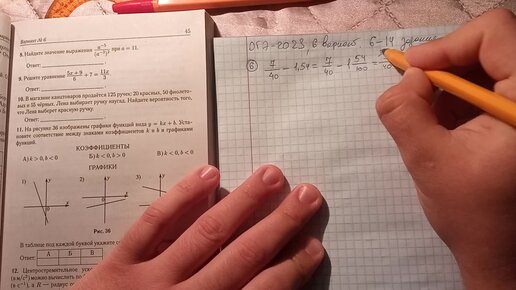 Вариант № 6
45
8. Найдите значение выражения a⁻⁵ при a = 11.
Ответ:
9. Решите уравнение (5x + 9)/6 + 7 = 11x
Ответ:
10. В магазине канцтоваров продаётся 125 ручек: 20 красных, 50 фиолето-
вых и 55 чёрных. Лена выбирает ручку наугад. Найдите вероятность того,
что Лена выберет красную ручку.
Ответ:
11. На рисунке 36 изображены графики функций вида y = kx + b. Устано-
вите соответствие между знаками коэффициентов k и b и графиками
функций.
КОЭФФИЦИЕНТЫ
А) k > 0, b < 0 Б) k < 0, b > 0 В) k < 0, b < 0
ГРАФИКИ
1) y x 2) y x 3) y
Рис. 36
В таблице под каждой буквой укажите
Ответ: А Б В
12. Центростремительное
(в м/с²) можно вычислить по
в с⁻¹), а R — радиус
ОГЭ-2023, 6 вариант 6–14
6 7/40 − 1,54 = 7/40 − 1 54/100 =